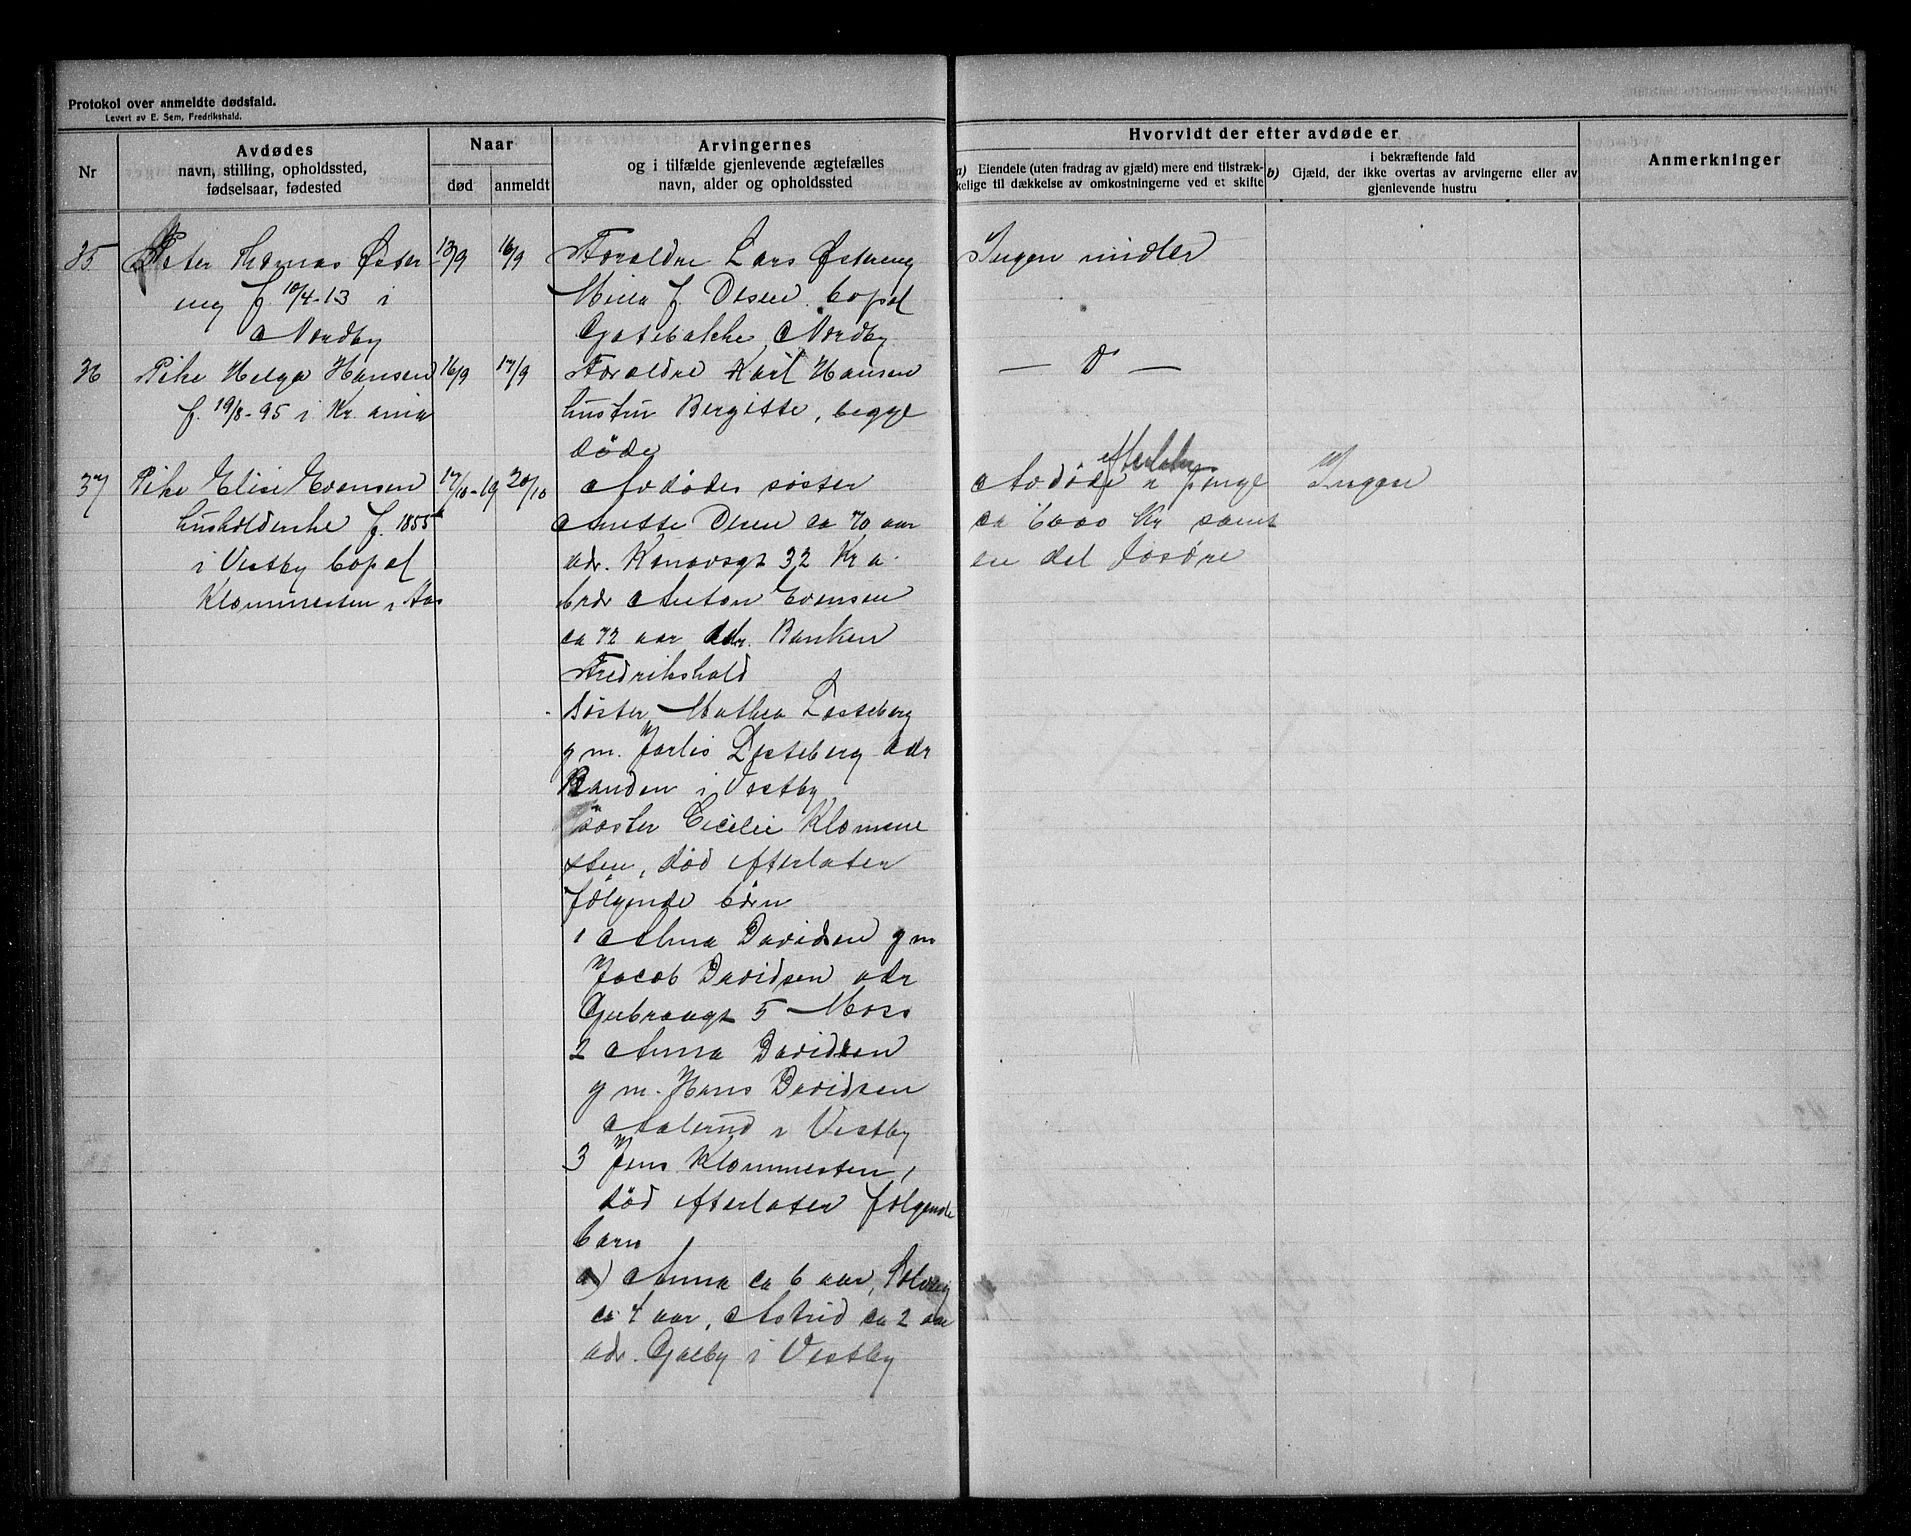 Protokol over anmeldte dødsfald.
Levert av E. Sem, Fredrikshald.
Nr
Avdødes
navn, stilling, opholdssted,
fødselsaar, fødested
Naar
død
anmeldt
Arvingernes
og i tilfælde gjenlevende ægtefælles
navn, alder og opholdssted
Hvorvidt der efter avdøde er
a) Eiendele (uten fradrag av gjæld) mere end tilstræk-
kelige til dækkelse av omkostningerne ved et skifte
i bekræftende fald
b) Gjæld, der ikke overtas av arvingerne eller av
gjenlevende hustru
Anmerkninger
35 Peter Thomas Øster
eng f. 10/4-13 i
Nordby
13/9 16/9
Forældre Lars Østereng
Mina f. Olsen bopæl
Nordby
Ingen midler
36 Pike Helga Hansen
f. 19/8-95 i Kr.ania
16/9 17/9
Forældre Karl Hansen
hustru Bergitte, begge
døde
— D —
37 Pike Elise Evensen
husholderske f. 1855
i Vestby bopæl
Klommesten i Aas
17/10-19 20/10
Avdødes søster
Anette Olsen ca 70 aar
adr. 32 Kr a.
bror Anton Evensen
ca 72 aar adr. Banken
Fredrikshald
søster Mathea Løsteberg
g m. Løsteberg adr
Randen i Vestby
søster Cecilie Klomme
sten, død efterlater
følgende børn
1 Alma Davidsen g m
Jacob Davidsen adr
5 Moss
2 Anna Davidsen
g m. Hans Davidsen
i Vestby
3 Jens Klommesten,
død efterlater følgende
barn
a) Anna ca 6 aar, Solveig
ca 4 aar, Astrid ca 2 aar
adr. Galby i Vestby
Avdøde efterlater i penge
ca 6000 Kr samt
en del løsøre
Ingen